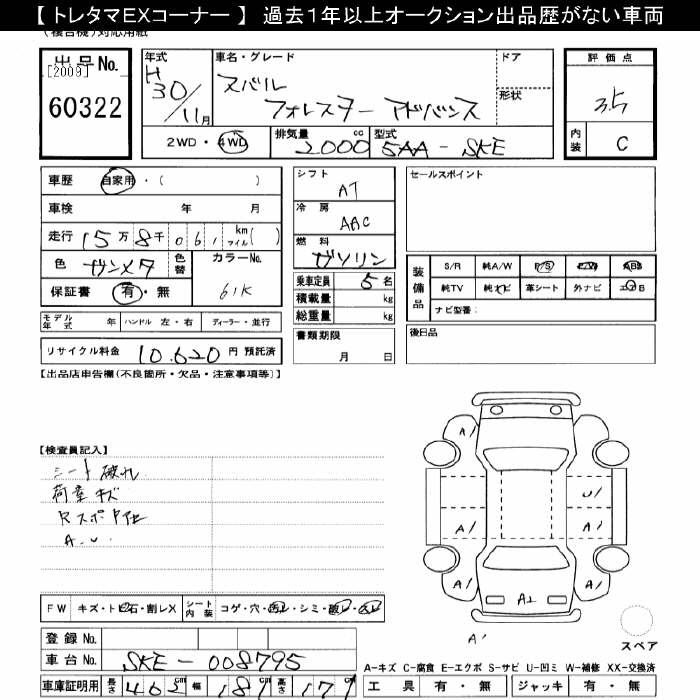 【トレタマEXコーナー】 過去1年以上オークション出品歴がない車両
(複合機)対応用紙
出品No.
[2009]
60322
年式
H
30/11月
車名・グレード
スバル
フォレスター アドバンス
ドア
形状
2WD・4WD
排気量
2000cc
型式
5AA-SKE
評価点
3.5
内装
C
車歴 自家用・( )
車検 年 月
走行 15万8千061 km マイル( )
色 ガンメタ
色替
カラーNo.
61K
保証書 有・無
シフト
AT
冷房
AAC
燃料
ガソリン
乗車定員 5名
積載量 kg
総重量 kg
書類期限
月 日
セールスポイント
装備品
S/R 純A/W P/S P/W ABS
純TV 純ナビ 革シート 外ナビ エアB
ナビ型番:
後日品
モデル年式 年 ハンドル 左・右 ディーラー・並行
リサイクル料金 10,620円 預託済
【出品店申告欄(不良箇所・欠品・注意事項等)】
【検査員記入】
シート破れ
荷室キズ
A.U.
A1
U1
A1
A1
A1
A1
A2
A1
FW キズ・トビ石・割レX
シート内装 コゲ・穴・汚レ・シミ・破レ・スレ
登録No.
車台No. SKE-008795
車庫証明用 長さ 462cm 幅 181cm 高さ 177
スペア
A-キズ C-腐食 E-エクボ S-サビ U-凹ミ W-補修 XX-交換済
工具 有・無 ジャッキ 有・無